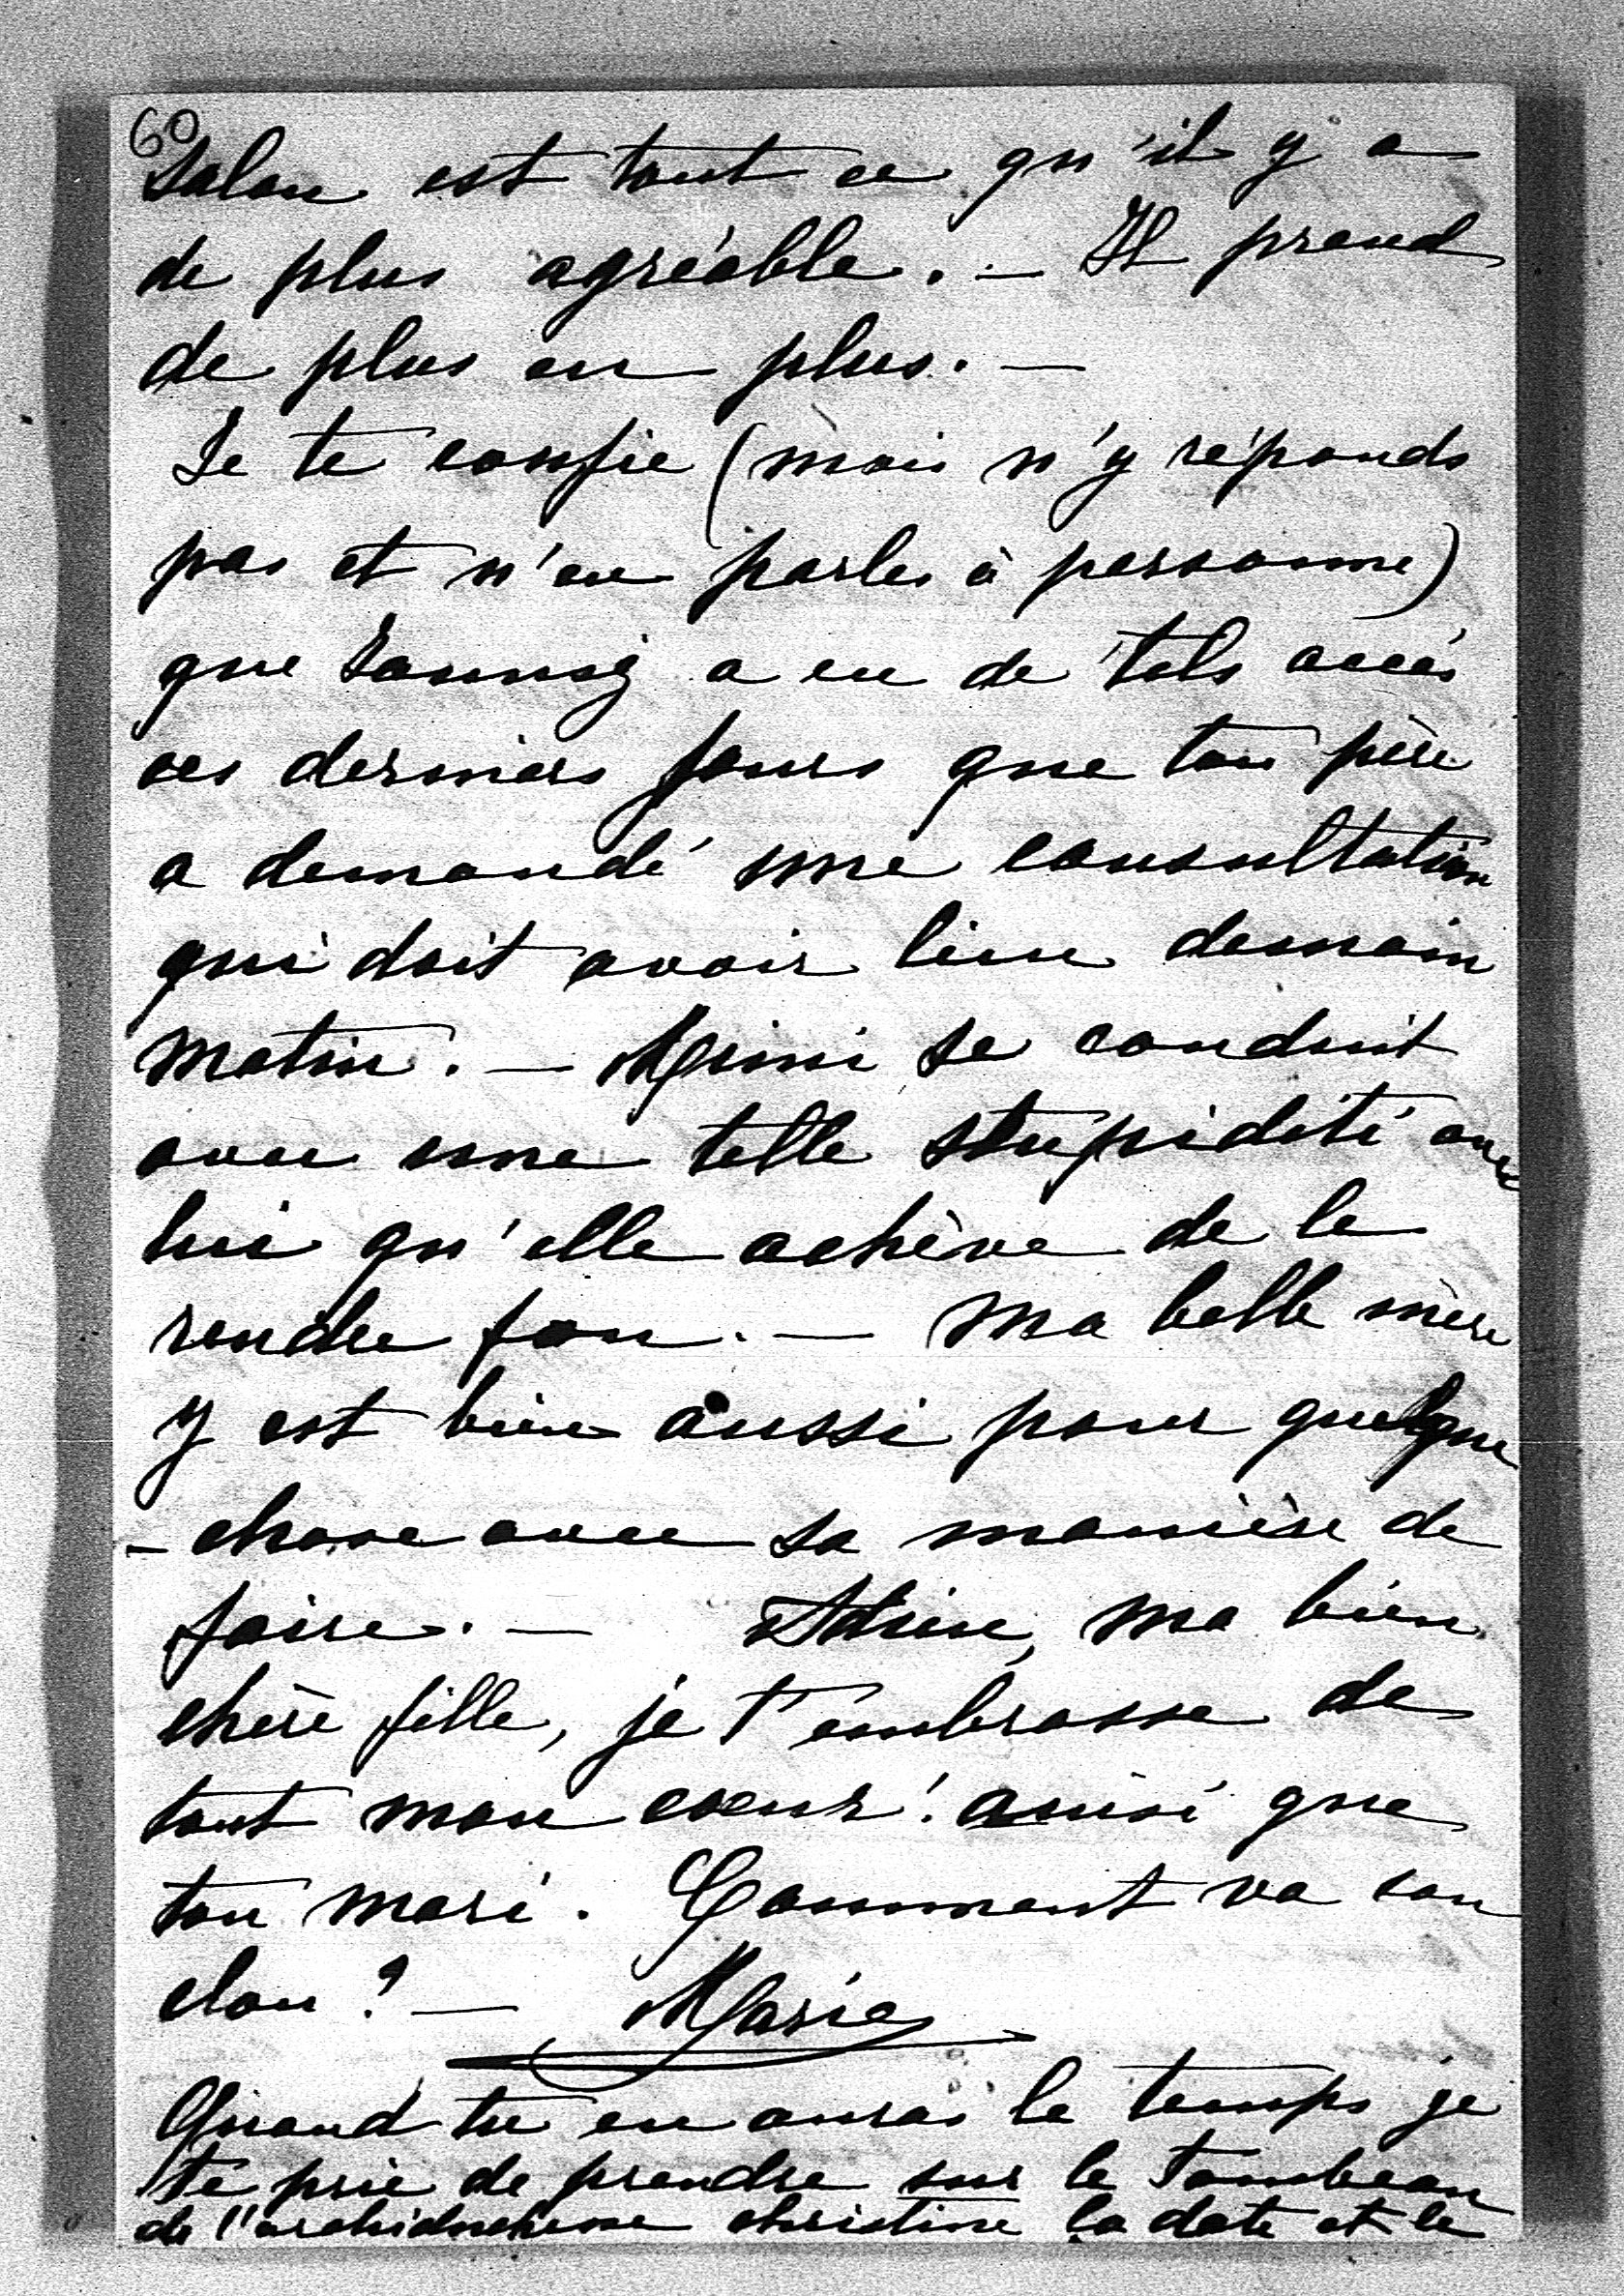 60
salon est tout ce qu'il y a
de plus agréable. — Il prend
de plus en plus. —
Je te confie (mais n'y réponds
pas et n'en parles à personne)
que a eu de tels accès
ces derniers jours que ton père
a demandé une consultation
qui doit avoir lieu demain
matin. — Mimi se conduit
avec une telle stupidité avec
lui qu'elle achève de le
rendre fou. — Ma belle mère
y est bien aussi pour quelque
- chose avec sa manière de
faire. — Adieu, ma bien
chère fille, je t'embrasse de
tout mon coeur! ainsi que
ton mari. Comment va son
clou? — Marie
Quand tu en auras le temps je
te prie de prendre sur le tombeau
de l'archiduchesse christine la date et le